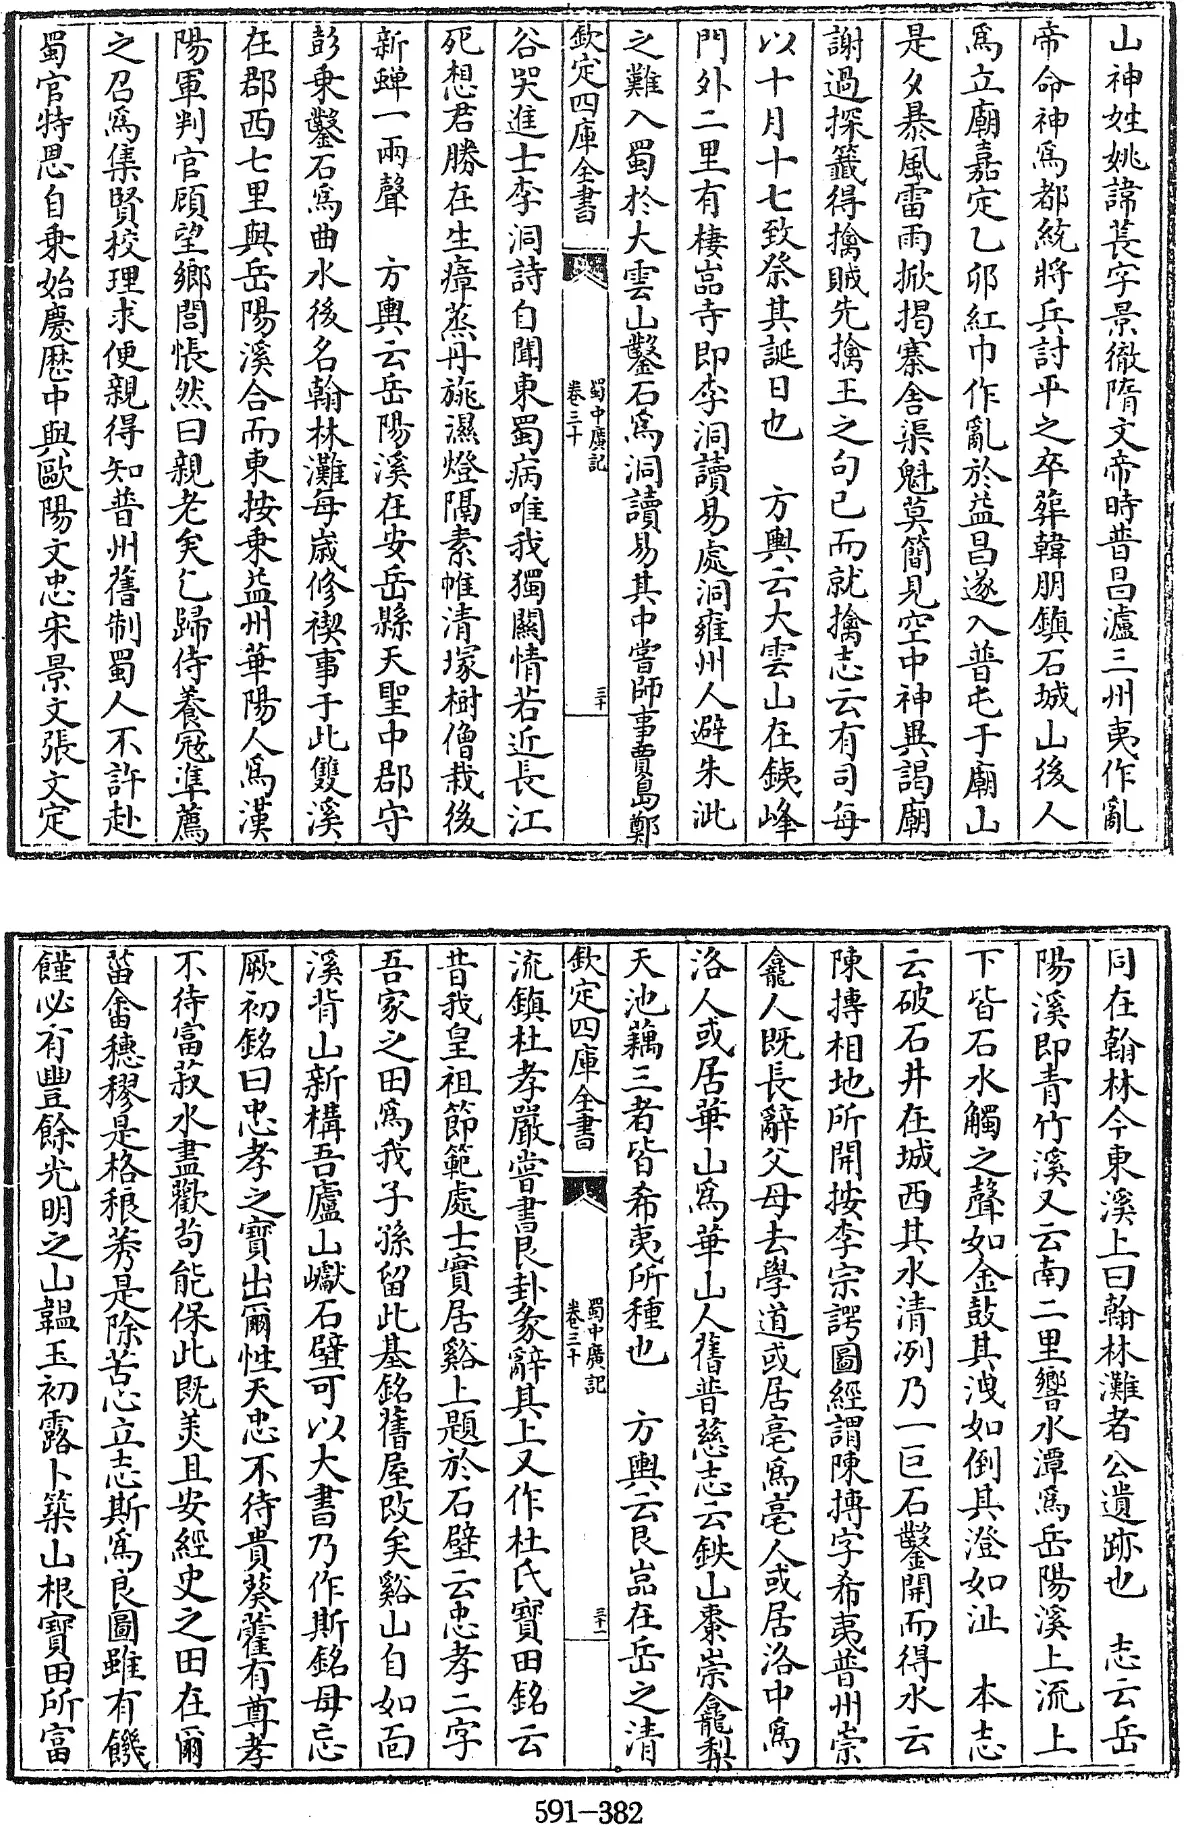 山神姓姚諱萇字景徹隋文帝時普昌瀘三州夷作亂
帝命神爲都統將兵討平之卒葬韓朋鎮石城山後人
爲立廟嘉定乙卯紅巾作亂於益昌遂入普屯于廟山
是夕暴風雷雨掀揭寨舍渠魁莫簡見空中神異謁廟
謝過探籤得擒賊先擒王之句已而就擒志云有司每
以十月十七致祭其誕日也　方輿云大雲山在鐵峰
門外二里有棲嵒寺即李洞讀易處洞雍州人避朱泚
之難入蜀於大雲山鑿石爲洞讀易其中嘗師事賈島鄭
欽定四庫全書
蜀中廣記
卷三十
三十
谷哭進士李洞詩自聞東蜀病唯我獨關情若近長江
死想君勝在生瘴蒸丹旐濕燈隔素帷清塚樹僧栽後
新蟬一兩聲　方輿云岳陽溪在安岳縣天聖中郡守
彭乘鑿石爲曲水後名翰林灘每歲修禊事于此雙溪
在郡西七里與岳陽溪合而東按乘益州華陽人爲漢
陽軍判官顧望鄉閭悵然曰親老矣乞歸侍養冦準薦
之召爲集賢校理求便親得知普州舊制蜀人不許赴
蜀官特恩自乘始慶厯中與歐陽文忠宋景文張文定
同在翰林今東溪上曰翰林灘者公遺跡也　志云岳
陽溪即青竹溪又云南二里響水潭爲岳陽溪上流上
下皆石水觸之聲如金鼓其洩如倒其澄如沚　本志
云破石井在城西其水清冽乃一巨石鑿開而得水云
陳摶相地所開按李宗諤圖經謂陳摶字希夷普州崇
龕人既長辭父母去學道或居亳爲亳人或居洛中爲
洛人或居華山爲華山人舊普慈志云鉄山棗崇龕梨
天池藕三者皆希夷所種也　方輿云艮嵒在岳之清
欽定四庫全書
蜀中廣記
卷三十
三十一
流鎮杜孝嚴嘗書艮卦彖辭其上又作杜氏寶田銘云
昔我皇祖節範處士實居谿上題於石壁云忠孝二字
吾家之田爲我子孫留此基銘舊屋改矣谿山自如面
溪背山新構吾廬山巘石壁可以大書乃作斯銘毋忘
厥初銘曰忠孝之寶出爾性天忠不待貴葵藿有尊孝
不待富菽水盡歡苟能保此既美且安經史之田在爾
菑畬穮穮是格稂莠是除苦心立志斯爲良圖雖有饑
饉必有豐餘光明之山韞玉初露卜築山根寶田所富
591—382